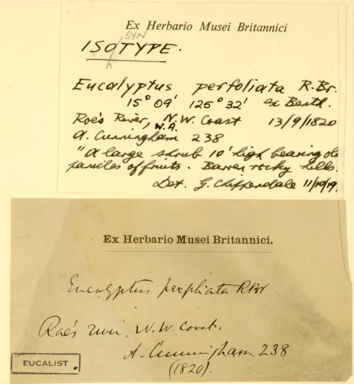 Ex Herbario Musei Britannici
SYN
ISOTYPE.
Eucalyptus perfoliata R.Br.
15° 09' 125° 32' ex Benth.
Roe's River, N.W. Coast 13/9/1820
W.A.
A. Cunningham 238
"A large shrub 10' high bearing
panicles of fruits. Barren rocky hills.
Det. G. Chippendale 11/10/19
Ex Herbario Musei Britannici.
Eucalyptus perfoliata RBr
Roe's river. N.W. Coast.
A. Cunningham 238
(1820).
EUCALIST.